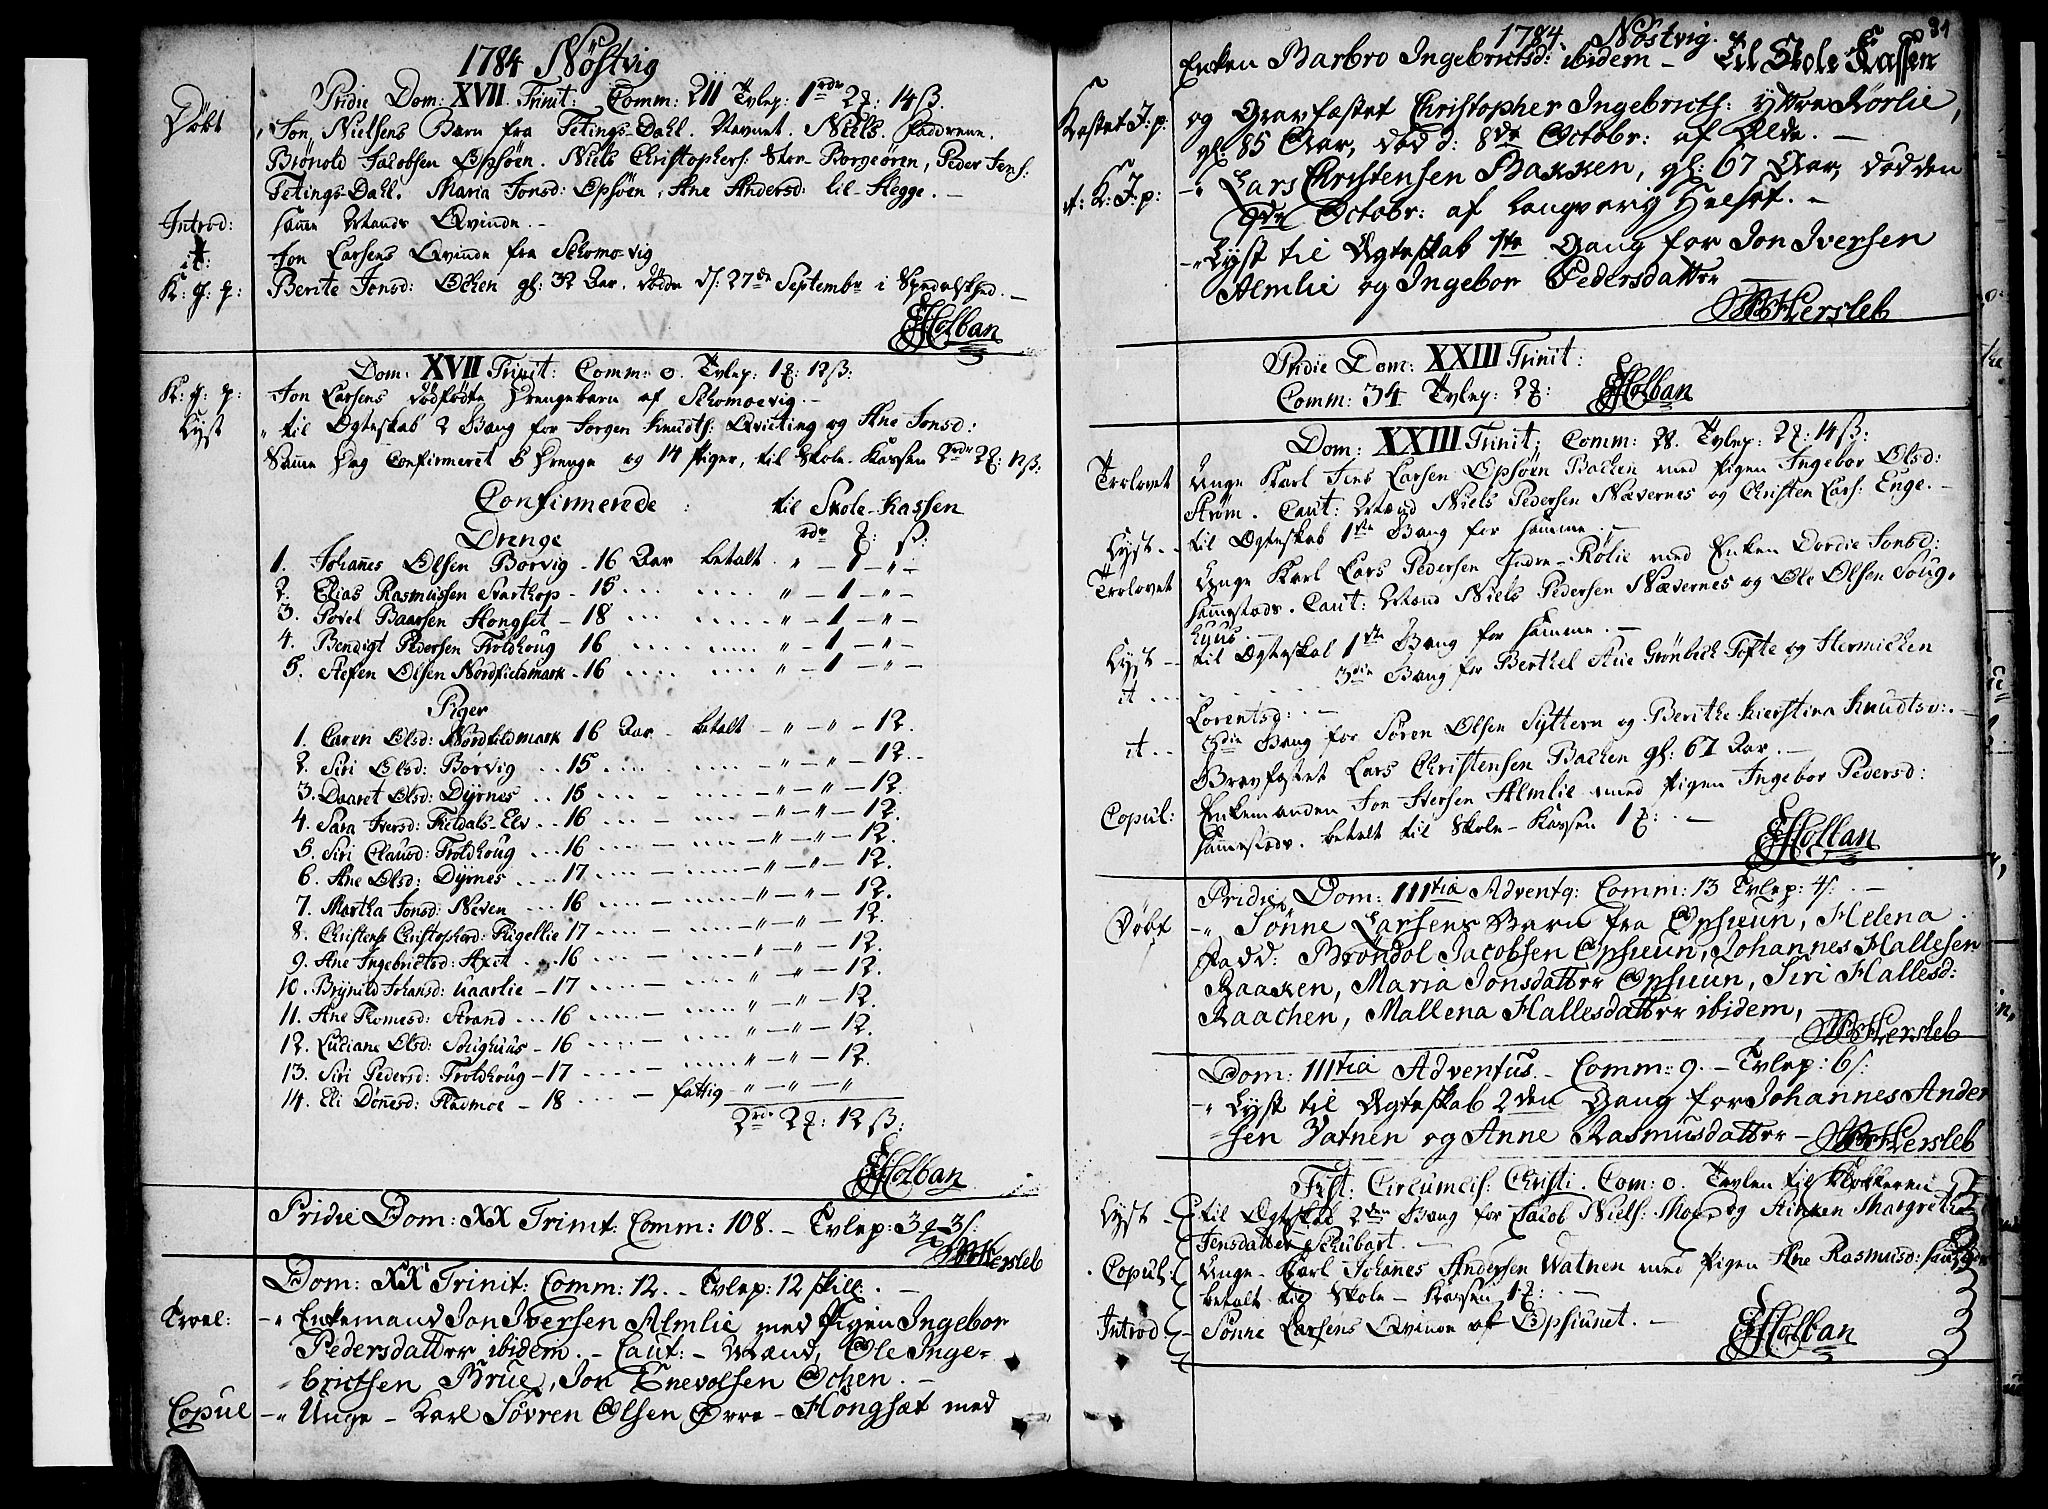 1784 Nöstvig
Pridie Dom: XVII Trinit: Comm: 211 Tvlep: 1rdr 2 14 ß.
Döbt
Jon Nielsens Barn fra Tetings-Dahl. Nevnet. Niels. Faddrene.
Brönold Jacobsen Opsöen. Niels Christophers: Stor-Borgeören, Peder Jens:
Tetings-Dahl. Maria Jonsd: Opsöen, Ane Andersd: lil-Stegge. —
Introd:
Samme Mands Qvinde. —
it:
Jon Larsens Qvinde fra Skomoevig
K: J: p:
Berite Jonsd: Ochen gl: 32 Aar. döde d: 27de Septembr i Spedalskhed. —
Holban
Dom: XVII Trinit: Comm: o. Tvlep: 1 : 12 ß:
K: J: p:
Jon Larsens dödfödte Drengebarn af Skomoevig. —
Lyst
" til Ægteskab 2 Gang for Jorgen Knudts: Qviting og Ane Jonsd:
Samme Dag Confirmeret 5 Drenge og 14 Piger, til Skole-Kassen 2rdr 2 : 12 ß:
Confirmerede : til Skole-Kassen
Drenge rdr : ß:
1. Johannes Olsen Borvig - 16 Aar betalt " - 1 - " -
2. Elias Rasmussen Starthop - 15 .... ..... " - 1 - " -
3. Povel Baarsen Hongset - 18 .... ..... " - 1 - " -
4. Bendigt Pedersen Troldhoug 16 .... ..... " - 1 - " -
5. Stefen Olsen Nordfieldmark - 16 .... ..... " - 1 - " -
Piger
1. Caren Olsd: Nordfieldmark 16 Aar - betalt - " - " - 12.
2. Siri Olsd: Borvig ... 15 .... ..... - " - " - 12. -
3. Daaret Olsd: Dyrnes ... 15 .... - ..... - " - " - 12.
4. Sara Iversd: Fieldals-Elv .. 16 .... - ..... - " - " - 12.
5. Siri Clausd: Troldhoug ... 16 .... - ..... - " - " - 12.
6. Ane Olsd: Dyrnes .... 17 .... - ..... - " - " - 12.
7. Martha Jonsd: Neven ... 16 .... - ..... - " - " - 12.
8. Christense Christophersd: Rigellie 17 .... - ..... - " - " - 12.
9. Ane Ingebrictsd: Axet ... 16 .... - ..... " - " - 12.
10. Brynild Johansd: Uaarlie - 17 .... - ..... " - " - 12.
11. Ane Thomesd: Strand ... 16 .... - ..... " - " - 12.
12. Luciane Olsd: Soughuus - 16 .... - ..... " - " - 12.
13. Siri Pedersd: Troldhoug - 17 .... - ..... " - " - 12.
14. Eli Dönesd: Stadmoe - 18 .... - fattig " - " - "
2rdr 2 : 12 ß:
Holban
Pridie Dom: XX Trinit: Comm: 108. - Tvlep: 3 3 s:
Hersleb
Dom: XX Trinit: Comm: 12. - Tvlep: 12 skill: . —
Troel:
-" Enkemand Jon Iversen Almlie med Pigen Ingebor
Pedersdatter ibidem. - Caut: - Mænd, Ole Inge-
brictsen Brue, Jon Enevolsen Ochen. —
Copul
-" Unge - Karl Sövren Olsen Övre - Hongsæt med
1784. Nöstvig. 81
Enken Barbro Ingebrictsd: ibidem - Til Skole Kassen
Kastet J: p:
og Gravfæstet Christopher Ingebricts: yttre Rörlie,
gl: 85 Aar, död d: 8de Octobr: af Ælde. —
it: K: J: p:
-" Lars Christensen Bakken, gl: 67 Aar, död den
9de Octobr: af langvarig Helsot. -
-" Lyst til Ægteskab 1ste Gang for Jon Iversen
Almlie og Ingebor Pedersdatter
Hersleb
Pridie Dom: XXIII Trinit:
Comm: 34 Tvlep: 2 :
Holban
Dom: XXIII Trinit: Comm: 28. Tvlep: 2 : 14 ß:
Trolovet
Unge Karl Jens Larsen Opsöen Bachen med Pigen Ingebor Olsd:
Ström. Caut: Mænd Niels Pedersen Nævernes og Christen Lars: Enge. -
Lyst - -
til Ægteskab 1ste Gang for samme. —
Trolovet
Unge Karl Lars Pedersen Indre-Rölie med Enken Dordie Jonsd:
sammestæds. Caut: Mænd Niels Pedersen Nævernes og Ole Olsen Soug-
huus. —
Lyst - -
til Ægteskab 1ste Gang for samme. —
it ...
3die Gang for Berthel Aue Grönbech Tofte og Hermichen
Lorentsd: . —
it ..
3die Gang for Sören Olsen Syttern og Berithe Kierstina Knudtsd: . —
Gravfæstet Lars Christensen Bachen gl: 67 Aar. —
Copul:
Enkemanden Jon Iversen Almlie med Pigen Ingebor Pedersd:
sammestæds. betalt til Skole-Kassen 1 : . —
Holban
Pridie Dom: IIItia Adventq: Comm: 13 Tvlep: 4 s: . —
Döbt
-" Sönne Larsens Barn fra Opsuun, Helena.
Fadd: Bröndol Jacobsen Opsuun, Johannes Hallesen
Baaken, Maria Jonsdatter Opsuun, Siri Hallesd:
Baachen, Mallena Hallesdatter ibidem,
Hersleb
Dom: IIItia Adventus. - Comm: 9. - Tvlep: 6 s:
-" Lyst til Ægteskab 2den Gang for Johannes Ander
sen Vatnen og Anne Rasmusdatter -
Hersleb
Fest: Circumcis: Christi. Com: o. Tavlen til Klokkeren
Lyst -
til Ægteskab 2den Gang for Jacob Niels: Moe og Stinken Margrethe
Jensdatter Schubart. —
Copul:
Unge - Karl Johanes Andersen Watnen med Pigen Ane Rasmusd:
betalt til Skole - Kassen 1 : —
Introd
Sönne Larsens Qvinde af Opsiunet. —
Holban